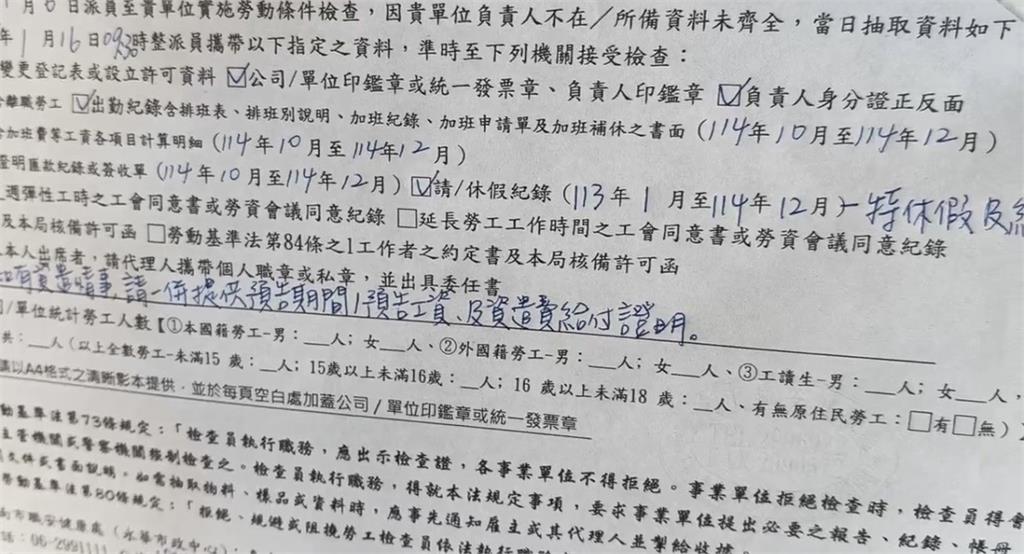 日派員至貴單位實施勞動條件檢查，因貴單位負責人不在／所備資料未齊全，當日抽取資料如下
年1月16日09:30時整派員攜帶以下指定之資料，準時至下列機關接受檢查：
變更登記表或設立許可資料 ☑公司/單位印鑑章或統一發票章、負責人印鑑章 ☑負責人身分證正反面
離職勞工 ☑出勤紀錄含排班表、排班別說明、加班紀錄、加班申請單及加班補休之書面（114年10月至114年12月）
加班費等工資各項目計算明細（114年10月至114年12月）
證明匯款紀錄或簽收單（114年10月至114年12月）☑請/休假紀錄（113年1月至114年12月）-特休假及
週彈性工時之工會同意書或勞資會議同意紀錄 □延長勞工工作時間之工會同意書或勞資會議同意紀錄
及本局核備許可函 □勞動基準法第84條之1工作者之約定書及本局核備許可函
本人出席者，請代理人攜帶個人職章或私章，並出具委任書
如有資遣情事，請一併提供預告期間/預告工資、及資遣費給付證明。
/單位統計勞工人數【①本國籍勞工-男：___人；女___人、②外國籍勞工-男：___人；女___人、③工讀生-男：___人；女___人，
共：___人（以上全數勞工-未滿15 歲：__人；15歲以上未滿16歲：__人；16 歲以上未滿18 歲：__人、有無原住民勞工：□有□無）】
請以A4格式之清晰影本提供，並於每頁空白處加蓋公司／單位印鑑章或統一發票章
動基準法第73條規定：「檢查員執行職務，應出示檢查證，各事業單位不得拒絕。事業單位拒絕檢查時，檢查員得會
主管機關或警察機關強制檢查之。檢查員執行職務，得就本法規定事項，要求事業單位提出必要之報告、紀錄、帳冊
文件或書面說明。如需抽取物料、樣品或資料時，應事先通知雇主或其代理人並掣給收據。
勞動基準法第80條規定：「拒絕、規避或阻撓勞工檢查員依法執行職務
南市職安健康處（永華市政中心）：
話：06-2991111